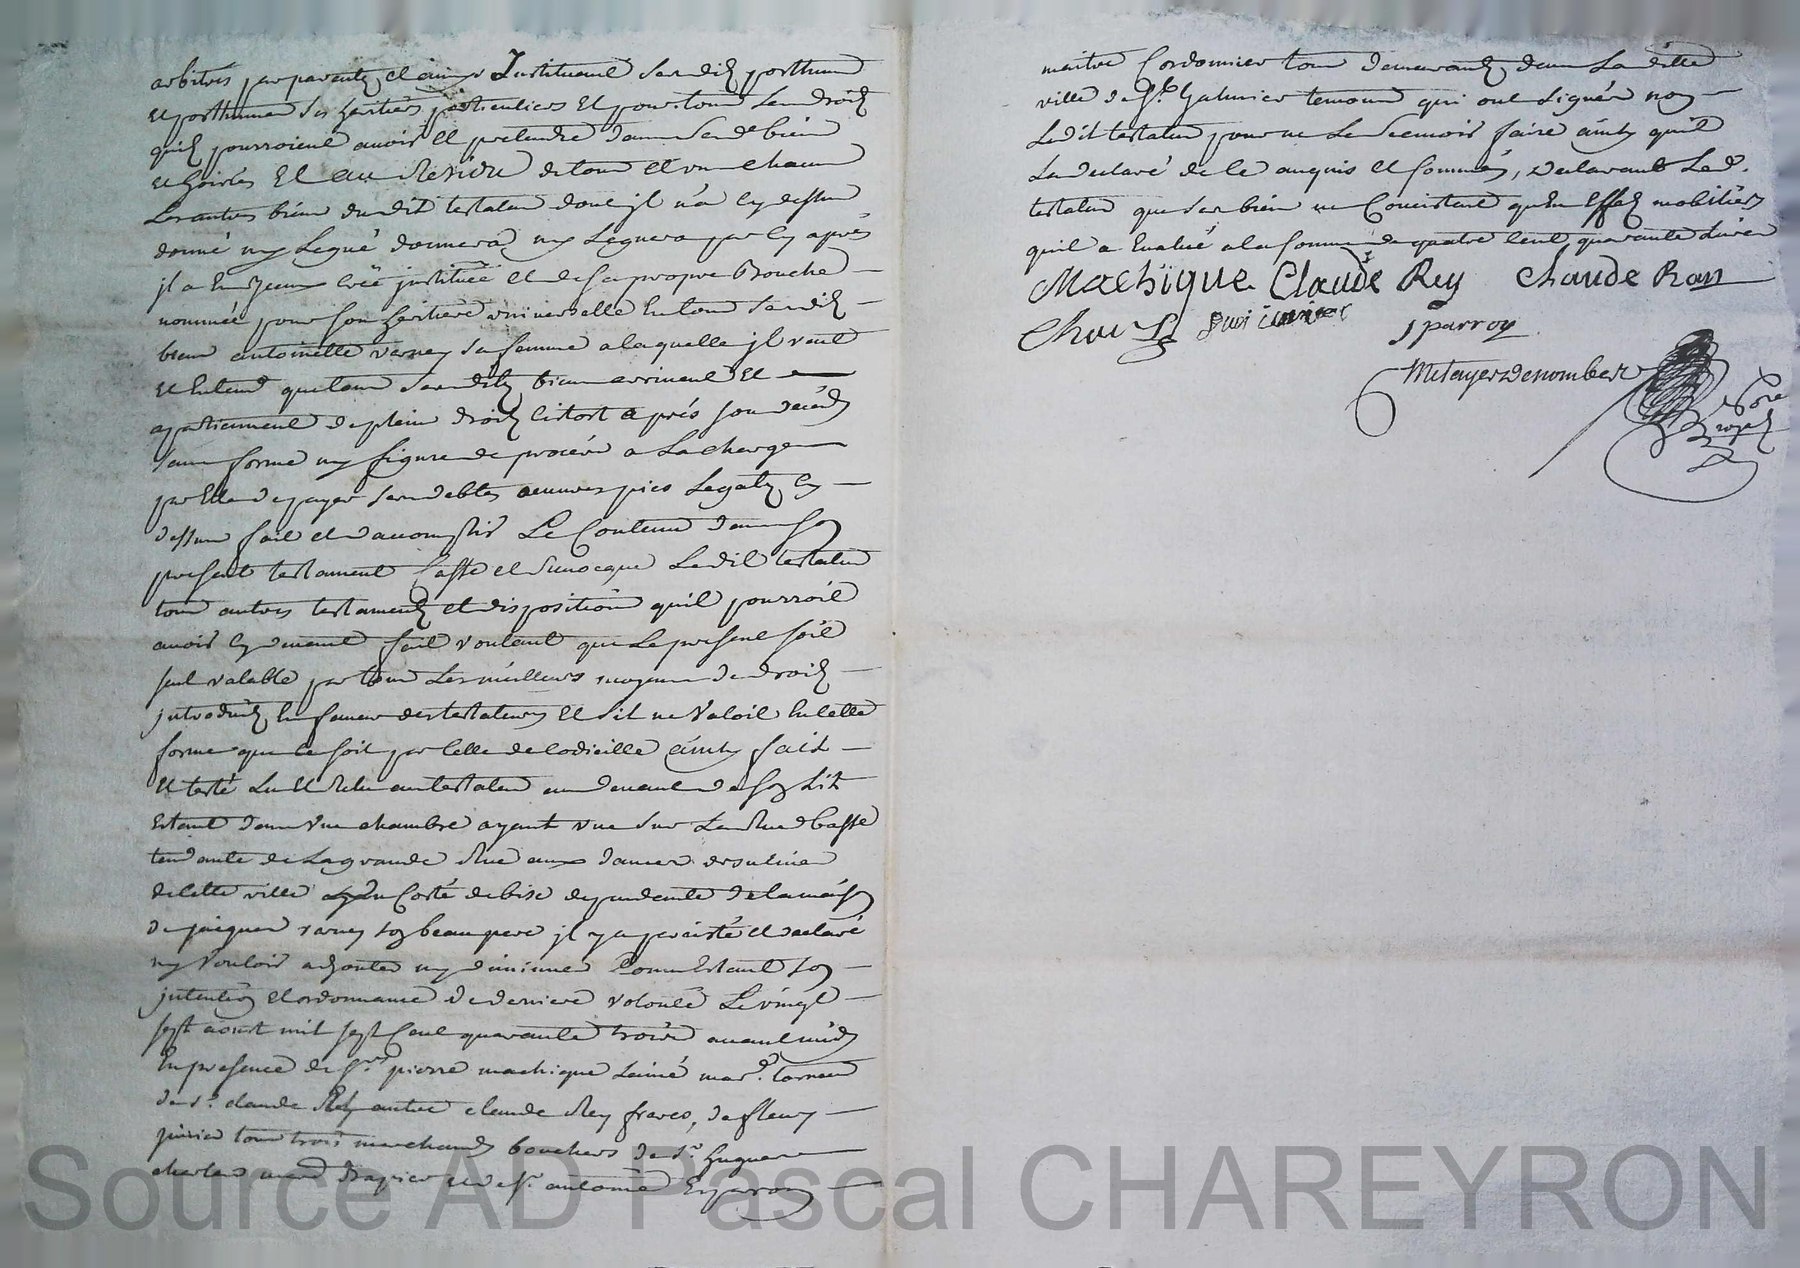 arbitrés par parents et amis Instituant sesdits posthume
et posthumes ses heritiers particuliers Et pour tous les droits
quils pourroient avoir et pretendre dans sesd biens
et hoiries Et au Residu de tous et un chacun
Les autres biens dudit testateur dont jl n'a cy dessus
donné ny Legué donnera ny Leguera par cy après
jl a fait creé jnstitué et de sa propre Bouche
nommée pour son heritiere universelle En tous sesdits
biens antoinette varney sa femme a laquelle jl veut
et Entend que tous sesdits biens arrivent Et
appartiennent de plein droit sitost après son deceds
sans forme ny figure de procés a La charge
par Elle de payer ses debtes oeuvres pies Legats cy
dessus fait et d'accomplir Le Contenu dans son
present testament Casse et revocque Ledit testateur
tous autres testaments et disposition quil pourroit
avoir cy devant fait voulant que Le present soit
seul valable par tous Les meilleurs moyens de droit
jntroduits En faveur des testateurs Et s'il ne Valoit En cette
forme que ce soit par Celle de Codicille ainsy fait
Et testé Lu Et Relu au testateur au devant de son Lit
Estant dans Une chambre ayant vue sur La Rue basse
tendante de La grande Rue aux dames ursulines
de Cette ville Costé de bise dependante de la maison
de jacques varney son beau pere jl y a persisté et declaré
ny vouloir adjouter ny diminuer Comm Estant son
jntention Et ordonnance de derniere volonté Le vingt
sept aoust mil sept Cent quarante trois avant midy
En presence de Srs pierre machique Lainé mard. taneur
de Sr. claude Rey autre claude Rey freres, de fleury
tous trois marchands bouchers de Sr. hugues
charles mard drapier et de Sr. antoine Esparron
maitre Cordonnier tous demeurants dans La ditte
ville de St. Galmier temoins qui ont signés non
Ledit testateur pour ne Le scavoir faire ainsy quil
La declaré de ce enquis et sommés, declarant Led.
testateur que ses biens ne Consistent qu'En Effets mobiliers
quil a Evalué a la somme de quatre Cent quarante Livres
Machique Claude Rey Chaude Ray
jparron
Metayer denombert